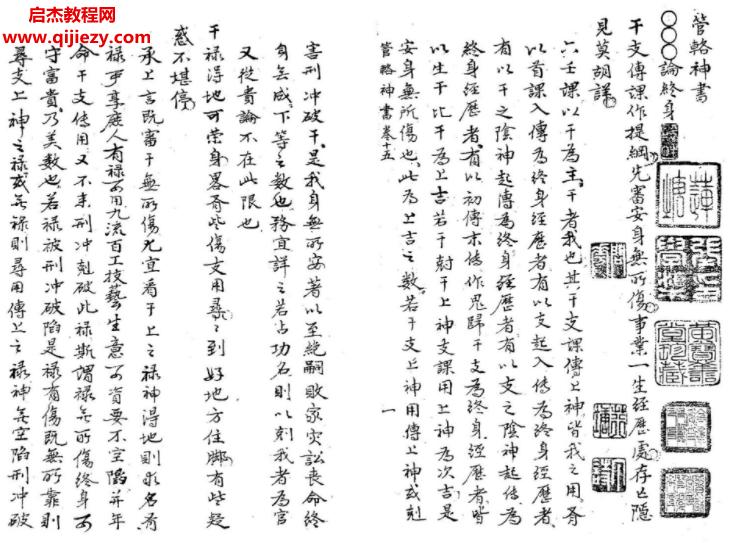 启杰教程网
www.qijiezy.com
管輅神書
○○○論終身
干支傳課作提綱先審安身無所傷事業一生經歷處存亡隱
見莫胡詳
六壬課以干為主干者我也其干支課傳上神皆我之用有
以首課入傳為終身經歷者有以支起入傳為終身經歷者
有以干之陰神起傳為終身經歷者有以支之陰神起傳為
終身經歷者有以初傳末傳作鬼歸干支為終身經歷者皆
以生干比干為上吉若干尅干上神支課用上神為次吉是
安身無所傷也此為上吉之數若干支上神用傳上神或刻
管輅神書卷十五
一
害刑冲破干是我身無所安著以至絶嗣敗家灾訟喪命終
身無成下等之數也務宜詳之若占功名則以刻我者為官
又從貴論不在此限也
干祿得地可榮身畧有些傷支用尋尋到好地方住脚有些疑
惑不堪停
承上言既審于無所傷尤宜看干上之祿神得地則求名有
祿可享庶人有祿可用九流百工技藝生意可資要不空陷并年
命干支傳用又不来刑冲剋破此祿斯謂祿無所傷終身可
守富貴乃美數也若祿被刑冲破陷是祿有傷既無所靠則
尋支上神之祿或無祿則尋用傳上之祿神無空陷刑冲破